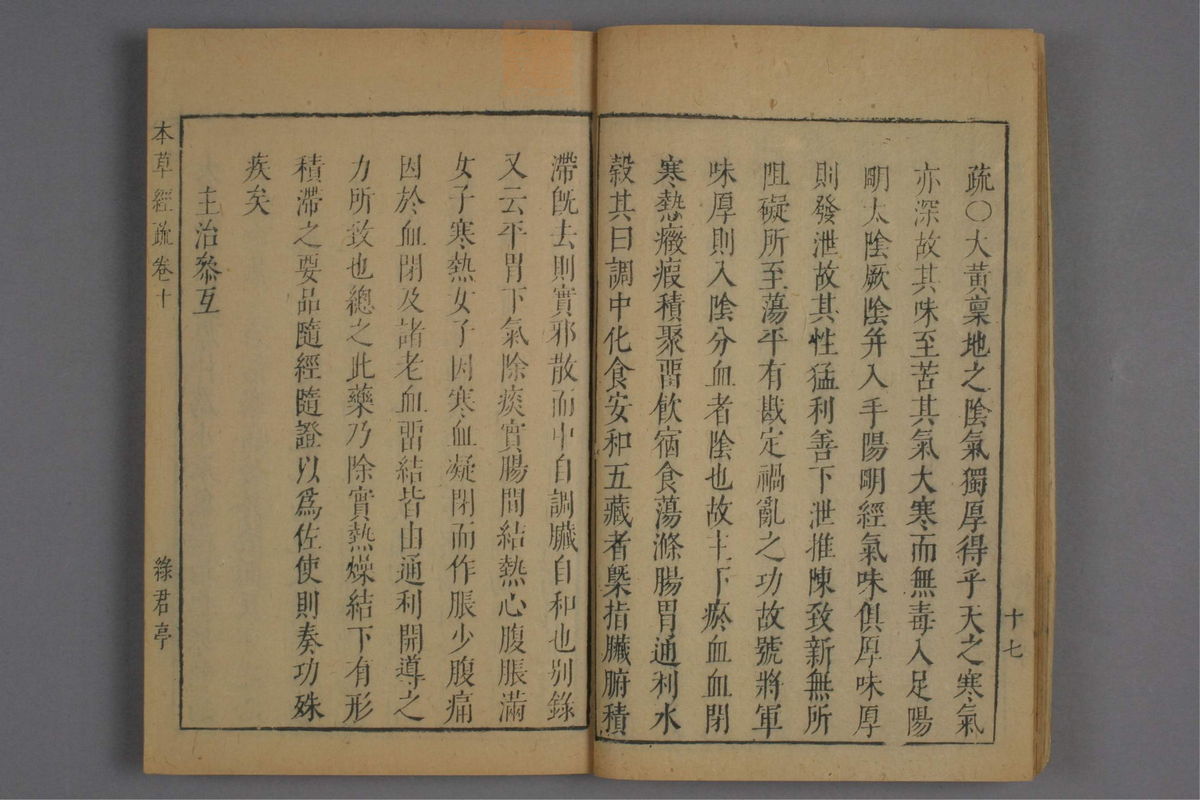 疏〇大黃稟地之陰氣獨厚得乎天之寒氣
亦深故其味至苦其氣大寒而無毒入足陽
明太陰厥陰并入手陽明經氣味俱厚味厚
則發泄故其性猛利善下泄推陳致新無所
阻礙所至蕩平有戡定禍亂之功故號將軍
味厚則入陰分血者陰也故主下瘀血血閉
寒熱癥瘕積聚畱飲宿食蕩滌腸胃通利水
穀其曰調中化食安和五藏者槩指臟腑積
十七
滯旣去則實邪散而中自調臟自和也別錄
又云平胃下氣除痰實腸間結熱心腹脹滿
女子寒熱女子因寒血凝閉而作脹少腹痛
因於血閉及諸老血畱結皆由通利開導之
力所致也總之此藥乃除實熱燥結下有形
積滯之要品隨經隨證以爲佐使則奏功殊
疾矣
主治參互
本草經疏卷十
綠君亭